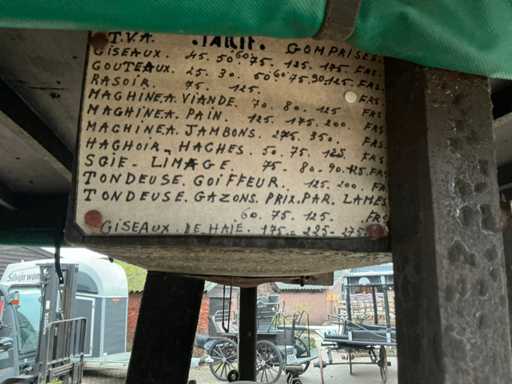 T.V.A. .TARIF. COMPRISES.
CISEAUX. 45. 50 60 75. 125. 175. FRS
COUTEAUX. 25. 30. 50 60 75. 90 125. FRS
RASOIR. 75. 125. FRS
MACHINE.A.VIANDE. 70. 80. 125. FRS
MACHINE.A. PAIN. 125. 175. 200. FRS
MACHINE.A. JAMBONS. 275. 350. FRS
HACHOIR - HACHES. 50. 75. 125. FRS
SCIE - LIMAGE. 75. 80. 90. 125. FRS
TONDEUSE. COIFFEUR. 125. 200. FRS
TONDEUSE. GAZONS. PRIX. PAR. LAMES
60. 75. 125. FRS
CISEAUX. DE HAIE. 175. 225. 275